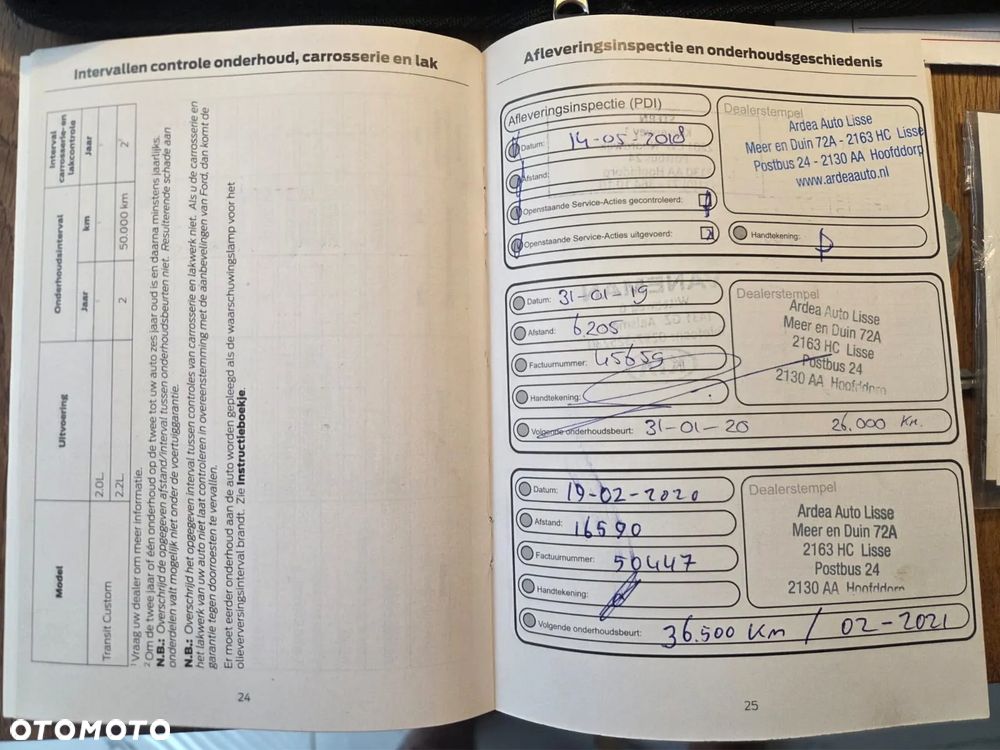 Intervallen controle onderhoud, carrosserie en lak
Model
Uitvoering
Onderhoudsinterval
Interval carrosserie-en lakcontrole
Jaar
km
Jaar
Transit Custom
2.0L
2.2L
2
50.000 km
2²
¹ Vraag uw dealer om meer informatie.
² Om de twee jaar of één onderhoud op de twee tot uw auto zes jaar oud is en daarna minstens jaarlijks.
N.B.: Overschrijd de opgegeven afstand/interval tussen onderhoudsbeurten niet. Resulterende schade aan
onderdelen valt mogelijk niet onder de voertuiggarantie.
N.B.: Overschrijd het opgegeven interval tussen controles van carrosserie en lakwerk niet. Als u de carrosserie en
het lakwerk van uw auto niet laat controleren in overeenstemming met de aanbevelingen van Ford, dan komt de
garantie tegen doorroesten te vervallen.
Er moet eerder onderhoud aan de auto worden gepleegd als de waarschuwingslamp voor het
olieverversingsinterval brandt. Zie Instructieboekje.
24
Afleveringsinspectie en onderhoudsgeschiedenis
Afleveringsinspectie (PDI)
Datum: 14-05-2018
Afstand:
Openstaande Service-Acties gecontroleerd:
Openstaande Service-Acties uitgevoerd:
Dealerstempel
Ardea Auto Lisse
Meer en Duin 72A - 2163 HC Lisse
Postbus 24 - 2130 AA Hoofddorp
www.ardeaauto.nl
Handtekening:
Datum: 31-01-19
Afstand: 6205
Factuurnummer: 45659
Handtekening:
Volgende onderhoudsbeurt: 31-01-20 26.000 Km.
Dealerstempel
Ardea Auto Lisse
Meer en Duin 72A
2163 HC Lisse
Postbus 24
2130 AA Hoofddorp
Datum: 19-02-2020
Afstand: 16590
Factuurnummer: 50447
Handtekening:
Volgende onderhoudsbeurt: 36.500 Km / 02-2021
Dealerstempel
Ardea Auto Lisse
Meer en Duin 72A
2163 HC Lisse
Postbus 24
2130 AA Hoofddorp
25
OTOMOTO